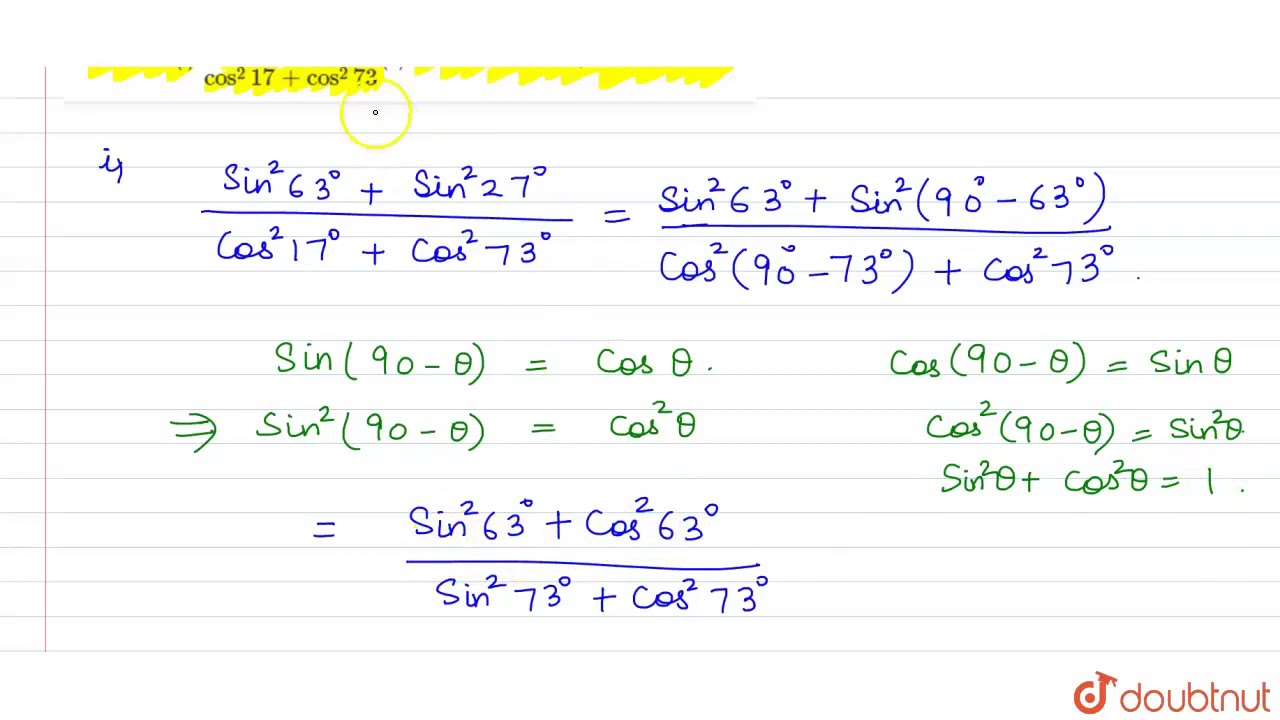 cos² 17 + cos² 73
i,
(Sin² 63° + Sin² 27°) / (Cos² 17° + Cos² 73°) = (Sin² 63° + Sin² (90° - 63°)) / (Cos² (90° - 73°) + Cos² 73°) .
Sin (90 - θ) = Cos θ . Cos (90 - θ) = Sin θ
⇒ Sin² (90 - θ) = Cos² θ Cos² (90 - θ) = Sin² θ.
Sin² θ + Cos² θ = 1 .
= (Sin² 63° + Cos² 63°) / (Sin² 73° + Cos² 73°)
doubtnut